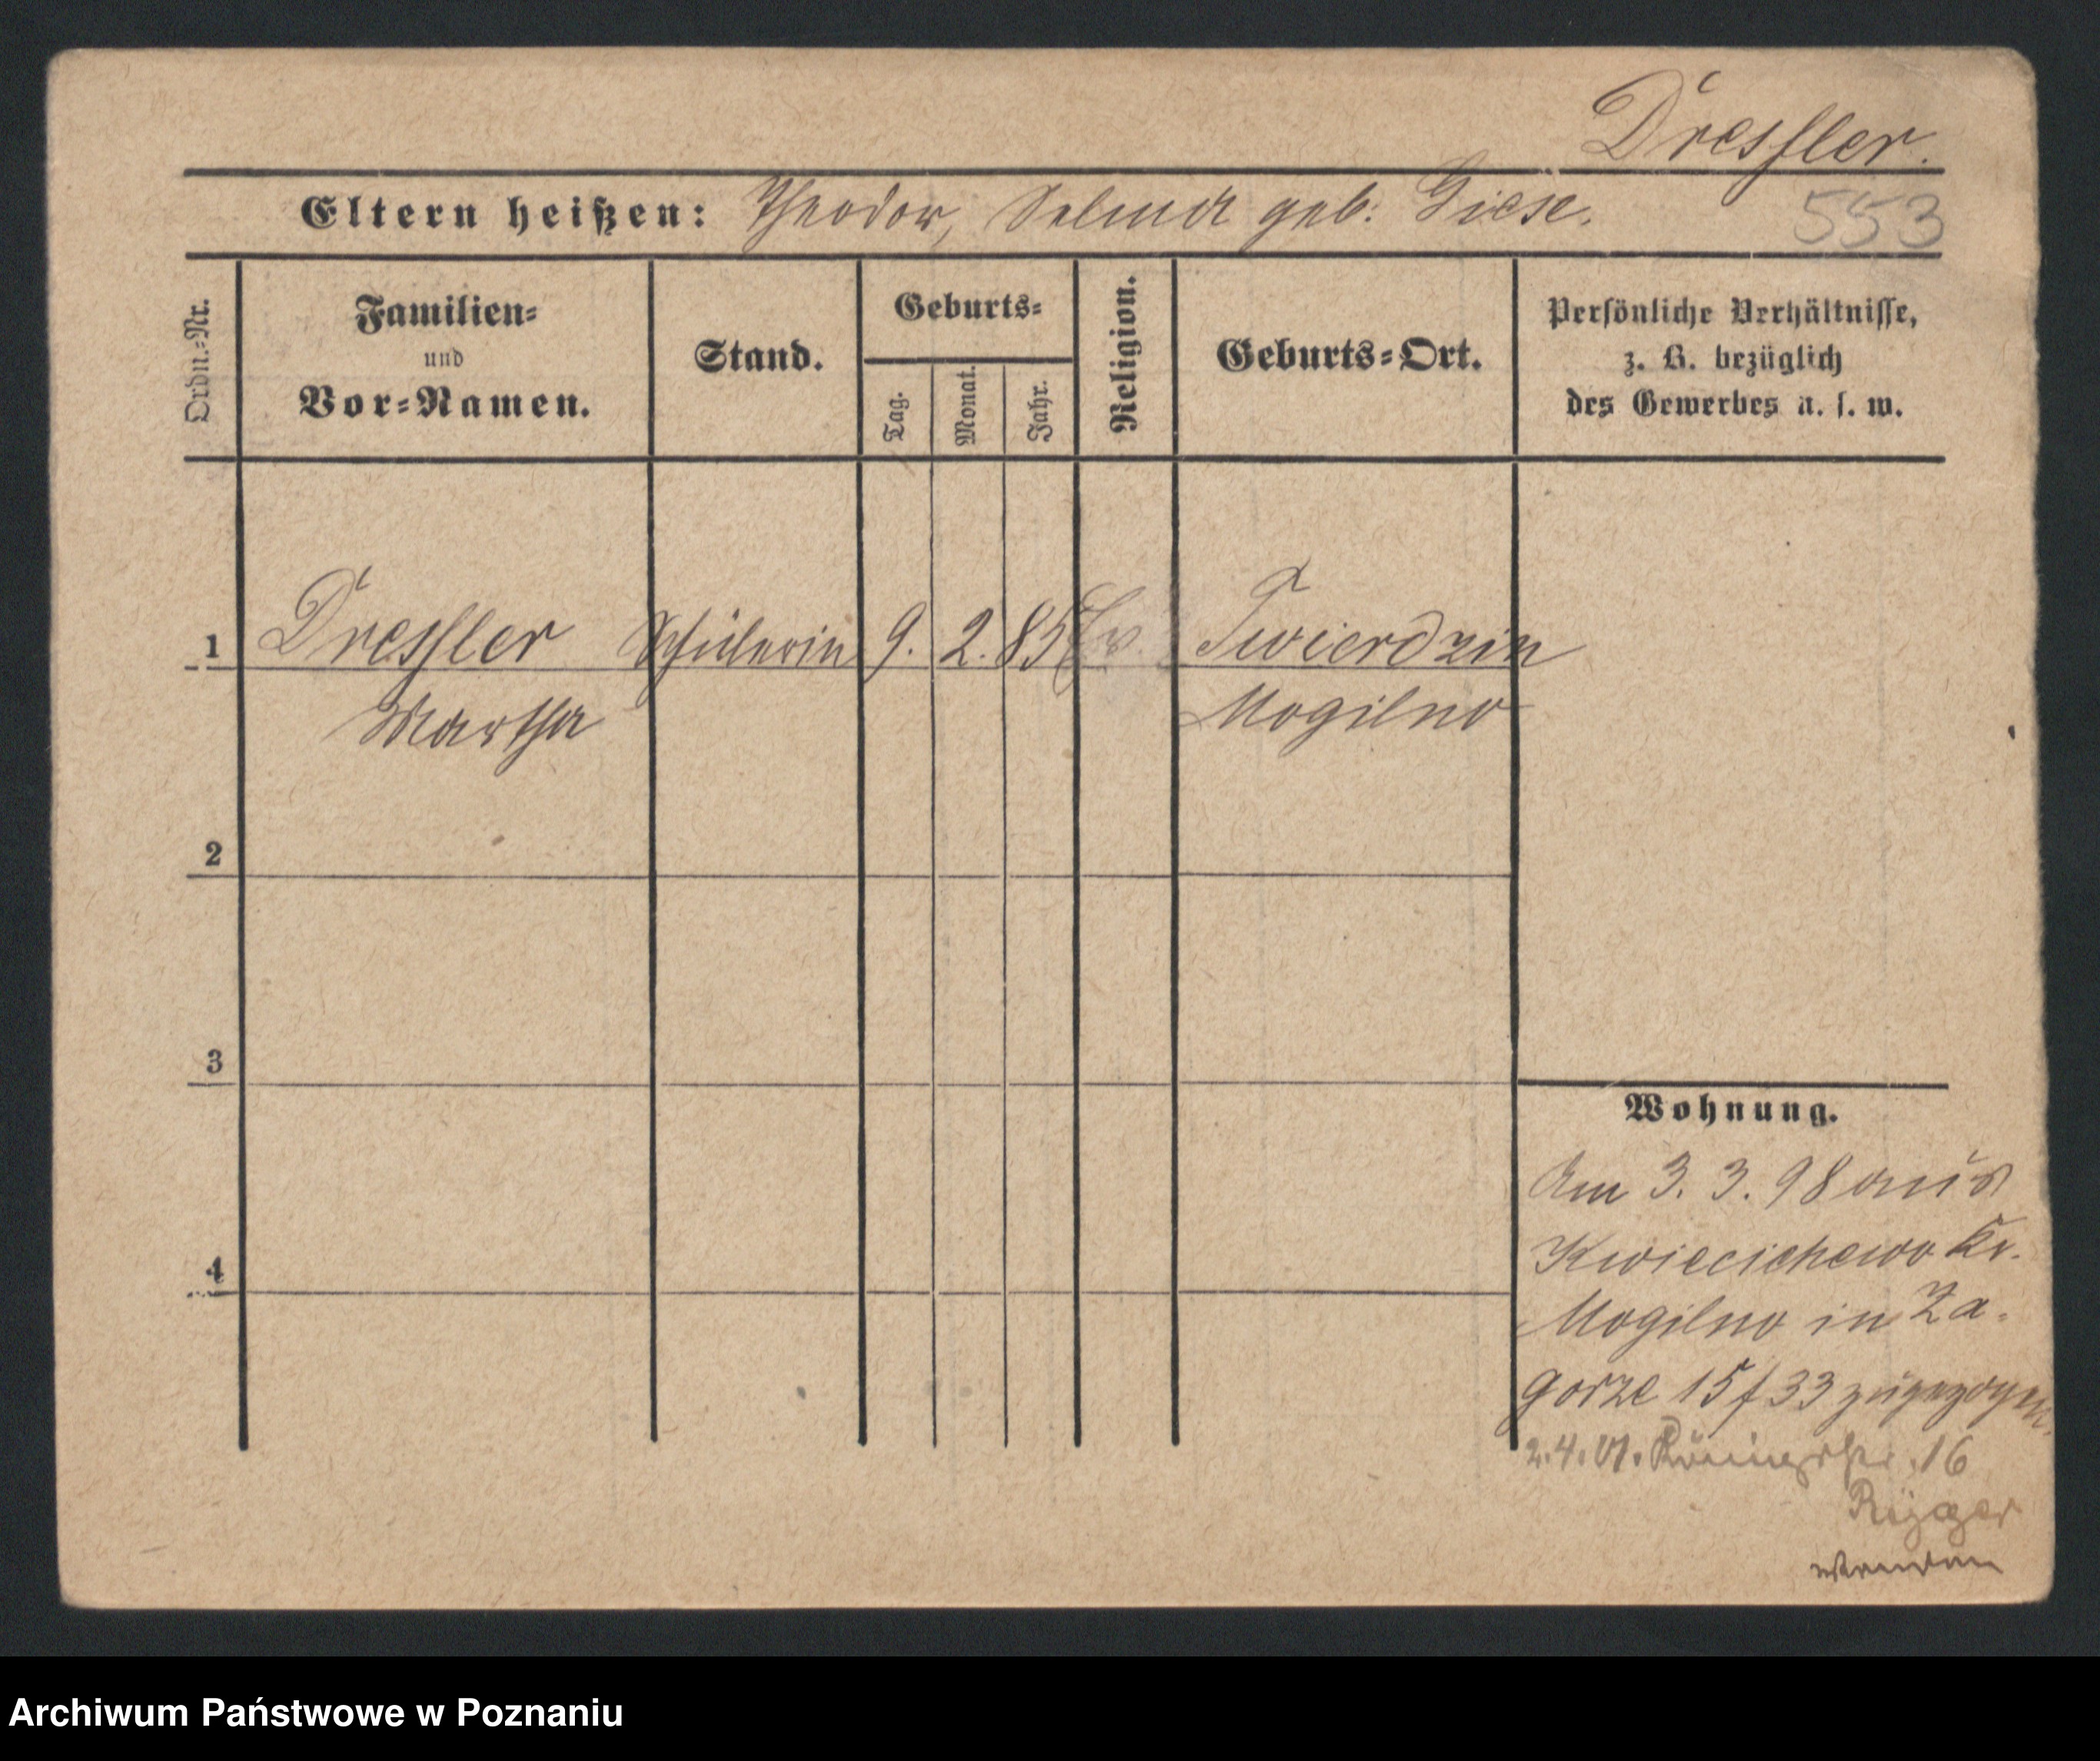 Dressler.
Eltern heißen: Theodor, Selma geb. Giese.
553
Ordn.-Nr.
Familien-
und
Vor-Namen.
Stand.
Geburts-
Tag.
Monat.
Jahr.
Religion.
Geburts-Ort.
Persönliche Verhältnisse,
z. B. bezüglich
des Gewerbes u. s. w.
1 Dressler Schülerin 9. 2. 85 Ev. Twierdzin
Martha Mogilno
2
3
4
Wohnung.
Am 3. 3. 98 aus
Kwiecichewo Kr.
Mogilno in Za-
gorze 15 / 33 zugezogen.
2.4.01. 16
wenden
Archiwum Państwowe w Poznaniu